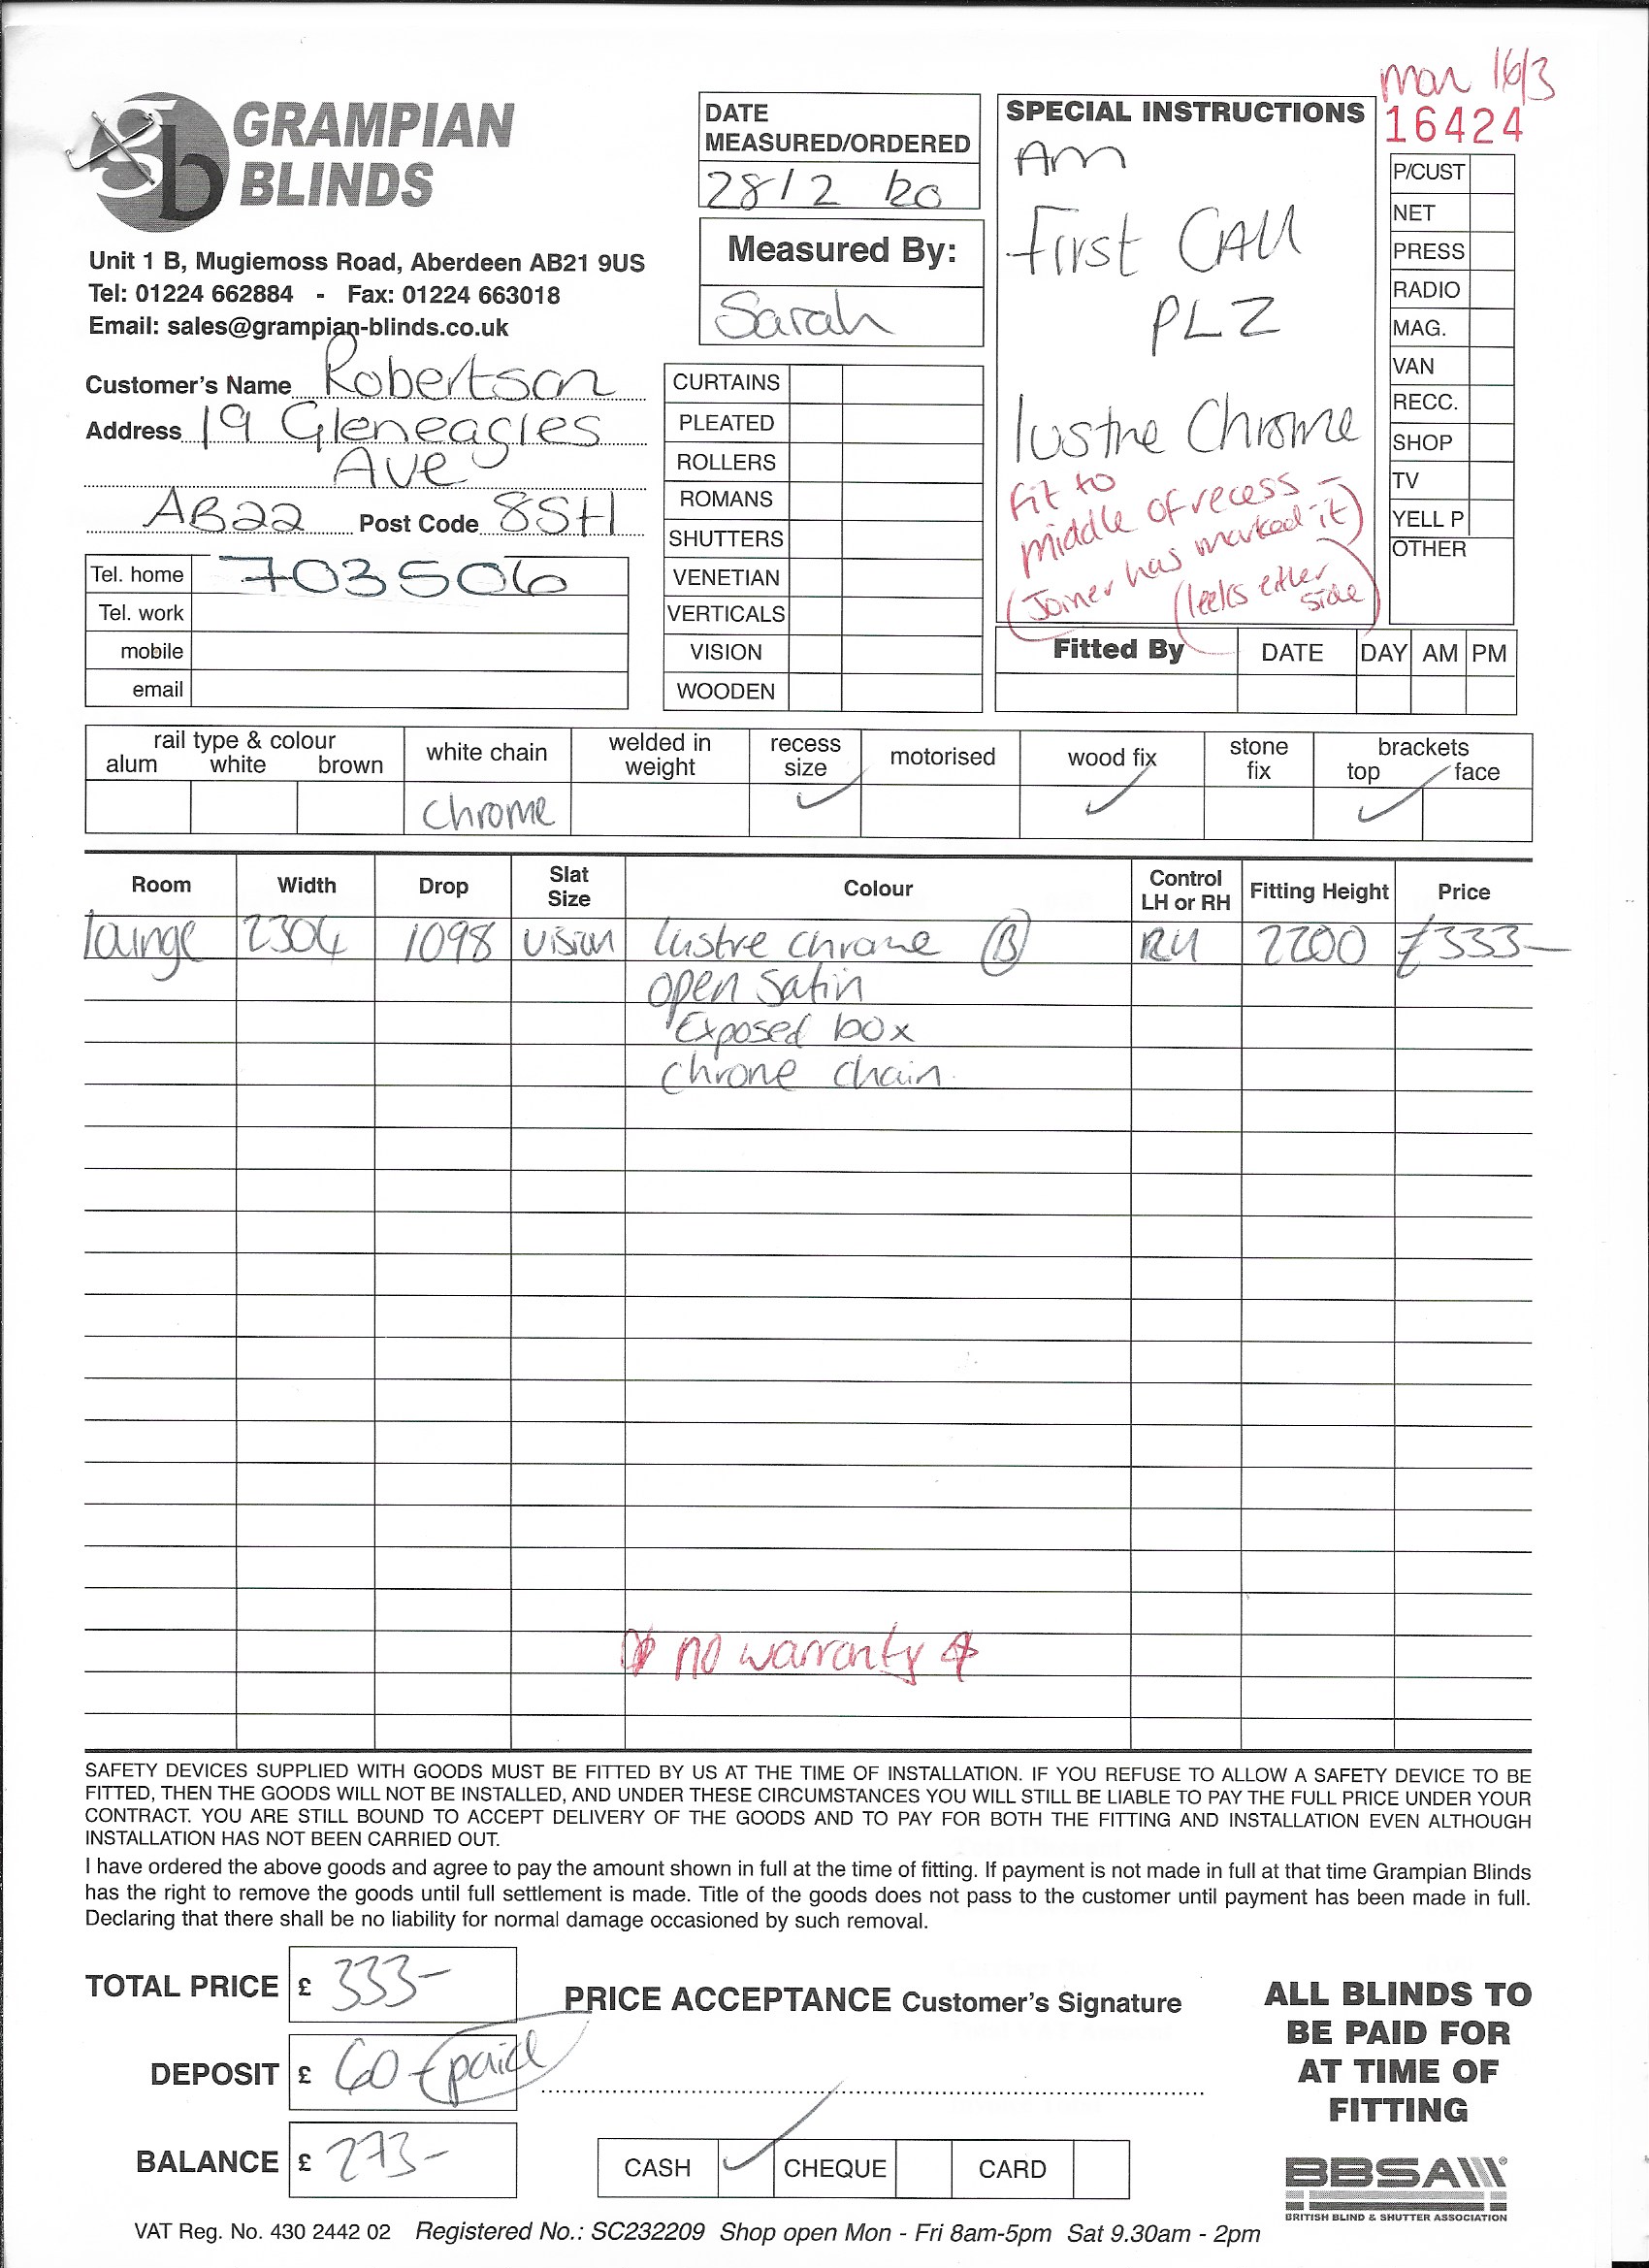 mon 16/3
16424
GRAMPIAN
BLINDS
Unit 1 B, Mugiemoss Road, Aberdeen AB21 9US
Tel: 01224 662884 - Fax: 01224 663018
Email: sales@grampian-blinds.co.uk
DATE
MEASURED/ORDERED
28/2 20
Measured By:
Sarah
SPECIAL INSTRUCTIONS
Am
First Call
PLZ
lustre Chrome
fit to
middle of recess -
(Joiner has marked it)
(leeks either
side)
P/CUST
NET
PRESS
RADIO
MAG.
VAN
RECC.
SHOP
TV
YELL P
OTHER
Customer's Name Robertson
Address 19 Gleneagles
Ave
AB22 Post Code 8SH
Tel. home 703506
Tel. work
mobile
email
CURTAINS
PLEATED
ROLLERS
ROMANS
SHUTTERS
VENETIAN
VERTICALS
VISION
WOODEN
Fitted By DATE DAY AM PM
rail type & colour
alum white brown
white chain
chrome
welded in
weight
recess
size
✓
motorised
wood fix
✓
stone
fix
brackets
top face
✓
Room Width Drop Slat Size Colour Control LH or RH Fitting Height Price
lounge 2304 1098 vision lustre chrome (B) RH 2200 £333-
open satin
Exposed box
chrome chain
no warranty
SAFETY DEVICES SUPPLIED WITH GOODS MUST BE FITTED BY US AT THE TIME OF INSTALLATION. IF YOU REFUSE TO ALLOW A SAFETY DEVICE TO BE
FITTED, THEN THE GOODS WILL NOT BE INSTALLED, AND UNDER THESE CIRCUMSTANCES YOU WILL STILL BE LIABLE TO PAY THE FULL PRICE UNDER YOUR
CONTRACT. YOU ARE STILL BOUND TO ACCEPT DELIVERY OF THE GOODS AND TO PAY FOR BOTH THE FITTING AND INSTALLATION EVEN ALTHOUGH
INSTALLATION HAS NOT BEEN CARRIED OUT.
I have ordered the above goods and agree to pay the amount shown in full at the time of fitting. If payment is not made in full at that time Grampian Blinds
has the right to remove the goods until full settlement is made. Title of the goods does not pass to the customer until payment has been made in full.
Declaring that there shall be no liability for normal damage occasioned by such removal.
TOTAL PRICE £ 333-
DEPOSIT £ 60 - (paid)
BALANCE £ 273-
PRICE ACCEPTANCE Customer's Signature
CASH ✓ CHEQUE CARD
ALL BLINDS TO
BE PAID FOR
AT TIME OF
FITTING
BBSA
BRITISH BLIND & SHUTTER ASSOCIATION
VAT Reg. No. 430 2442 02 Registered No.: SC232209 Shop open Mon - Fri 8am-5pm Sat 9.30am - 2pm